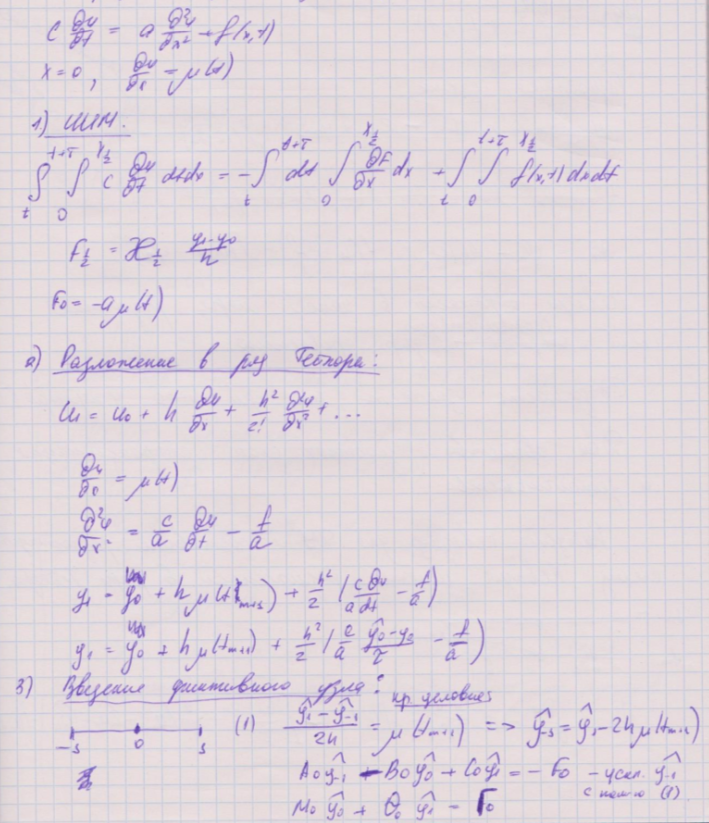 c ∂u/∂t = a ∂²u/∂x² + f(x,t)
x=0, ∂u/∂x = μ(t)
1) ИИМ.
∫_t^{t+τ} ∫_0^{x_{1/2}} c ∂u/∂t dtdx = -∫_t^{t+τ} dt ∫_0^{x_{1/2}} ∂F/∂x dx + ∫_t^{t+τ} ∫_0^{x_{1/2}} f(x,t) dxdt
F_{1/2} = ϰ_{1/2} (y₁-y₀)/h
F₀ = -aμ(t)
2) Разложение в ряд Тейлора:
u₁ = u₀ + h ∂u/∂x + h²/2! ∂²u/∂x² + ...
∂u/∂x = μ(t)
∂²u/∂x² = c/a ∂u/∂t - f/a
y₁ = y₀ + hμ(t_{m+1}) + h²/2 (c/a ∂u/∂t - f/a)
y₁ = y₀ + hμ(t_{m+1}) + h²/2 (c/a (ŷ₀-y₀)/τ - f/a)
3) Введение фиктивного узла:
кр условие
-1 0 1 (1) (ŷ₁-ŷ₋₁)/2h = μ(t_{m+1}) => ŷ₋₁ = ŷ₁-2hμ(t_{m+1})
A₀ŷ₋₁ - B₀ŷ₀ + C₀ŷ₁ = -F₀ - искл. ŷ₋₁
с пом-ю (1)
M₀ŷ₀ + Q₀ŷ₁ = Г₀